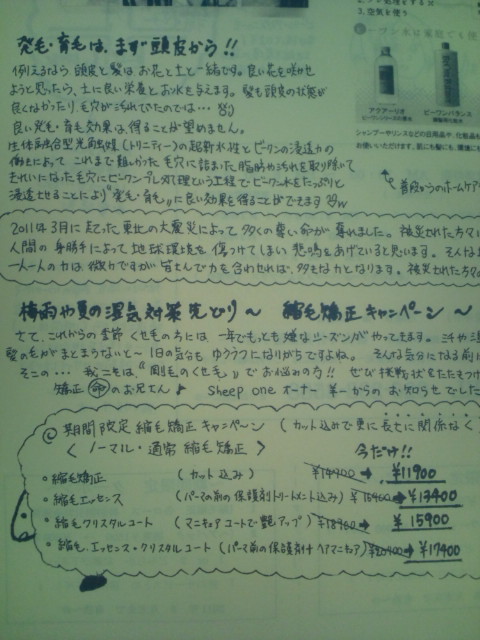 3. 空気を使う
アクアーリオ
ビーワンバランス
発毛・育毛は、まず頭皮から!!
例えるなら 頭皮と髪は、お花と土と一緒です。良い花を咲かせ
ようと思ったら、土に良い栄養とお水を与えます。髪も頭皮の状態が
良くなかったり、毛穴が汚れでいたのでは…
良い発毛・育毛効果は、得ることが望めません。
生体融合型光高気媒(トリニティー)の超新水性とビーワンの浸透力の
働きによって これまで難しかった毛穴に詰まった脂肪や汚れを取り除いて
きれいになった毛穴にビーワンプレ処理という工程でビーワン水をたっぷりと
浸透させることにより"発毛・育毛"に良い効果を得ることができます
普段からのホームケア
2011年3月に起った東北の大震災によって多くの尊い命が奪われました。被災された方々に
人間の身勝手によって地球環境を傷つけてしまい悲鳴をあげていると思います。そんな
一人一人の力は微力ですが皆さんで力を合わせれば、多大な力となります。被災された方々の
梅雨や夏の湿気対策先どり〜 縮毛矯正キャンペーン 〜
さて、これからの季節 くせ毛の方には 一年でもっとも嫌なシーズンがやってきます。
髪の毛がまとまらないと〜 1日の気分も ゆううつになりがちですよね。 そんな気分になる前に
そこの… 我こそは、"剛毛のくせ毛"でお悩みの方!! ぜひ挑戦状をたたきつけ
矯正 命 のお兄さん♪ Sheep one オーナー 羊一からのお知らせでした
◎期間限定 縮毛矯正キャンペーン (カット込みで更に長さに関係なく
<ノーマル・通常 縮毛矯正> 今だけ!!
・縮毛矯正 (カット込み) ¥14900→ ¥11900
・縮毛エッセンス (パーマの前の保護剤トリートメント込み) ¥16400→ ¥13400
・縮毛クリスタルコート (マニキュアコートで艶アップ) ¥18900→ ¥15900
・縮毛.エッセンス・クリスタルコート (パーマ前の保護剤付ヘアマニキュア) ¥20400→ ¥17400